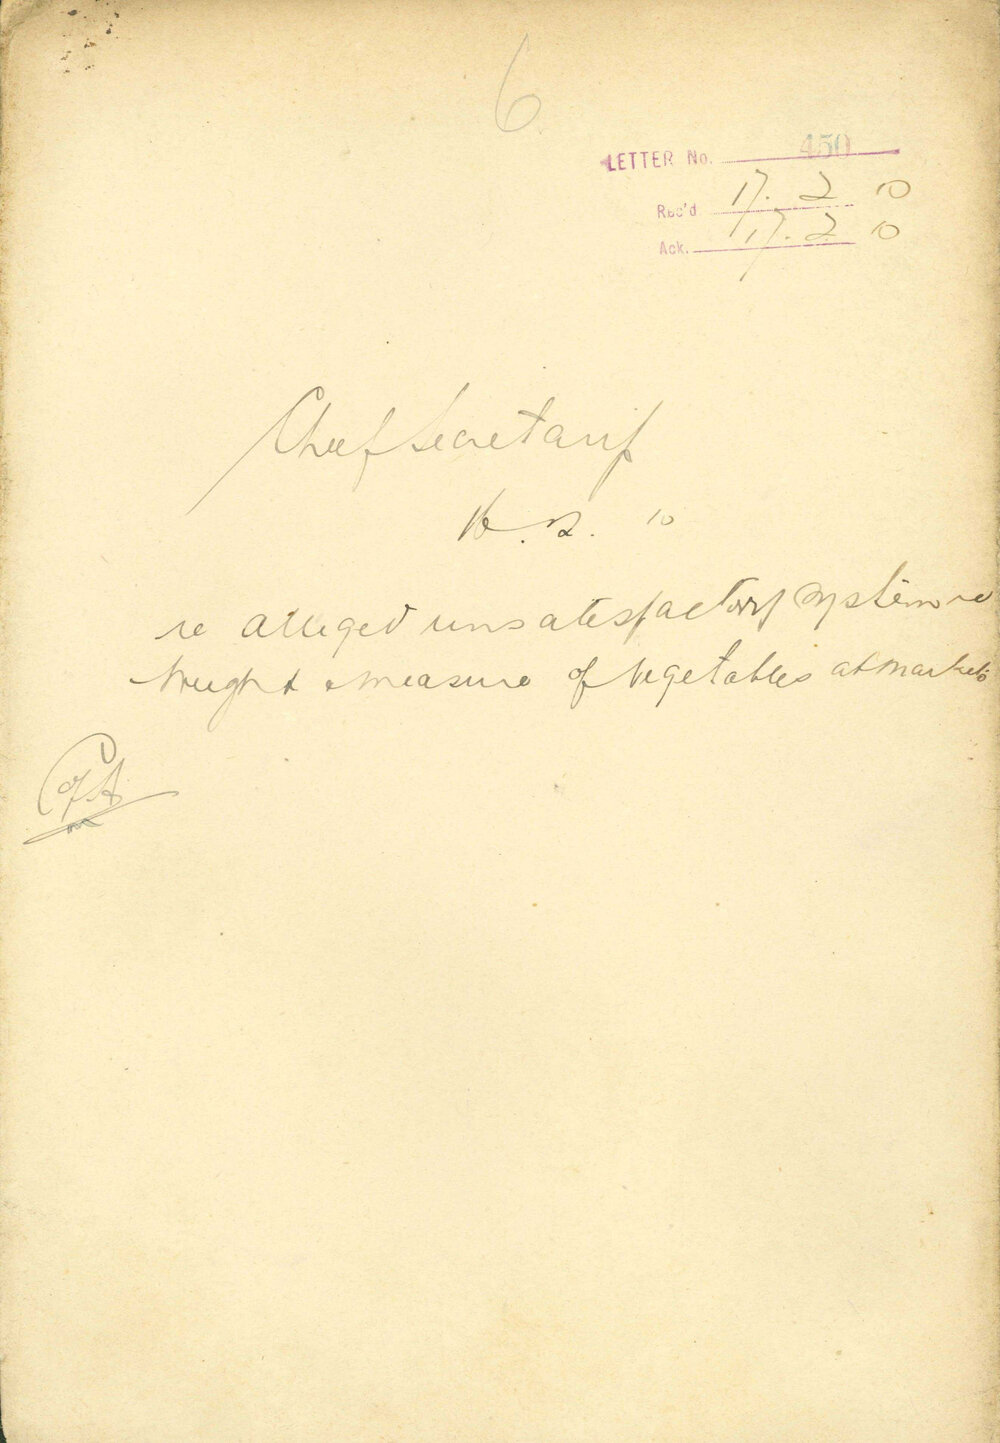 6
LETTER No. 450
Rec'd 17. 2 10
Ack. 17. 2 10
Chief Secretary
16. 2. 10
re alleged unsatisfactory system re
weight & measure of vegetables at markets